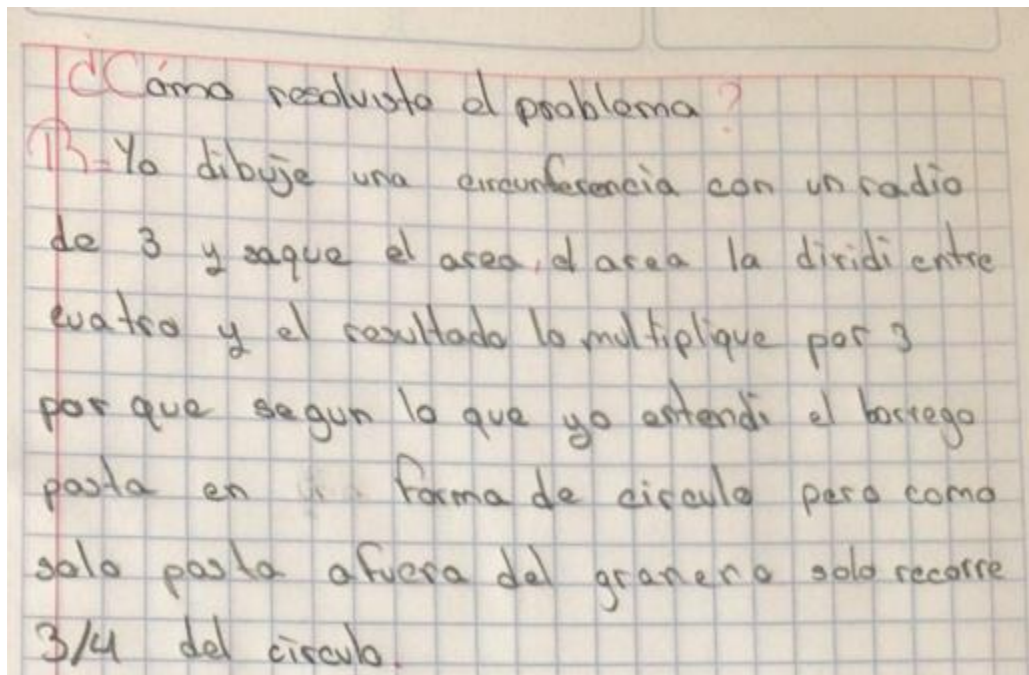 ¿Cómo resolviste el problema?
R= Yo dibuje una circunferencia con un radio
de 3 y saque el area, el area la dividi entre
cuatro y el resultado lo multiplique por 3
por que segun lo que yo entendi el borrego
pasta en forma de circulo pero como
solo pasta afuera del granero solo recorre
3/4 del circulo.